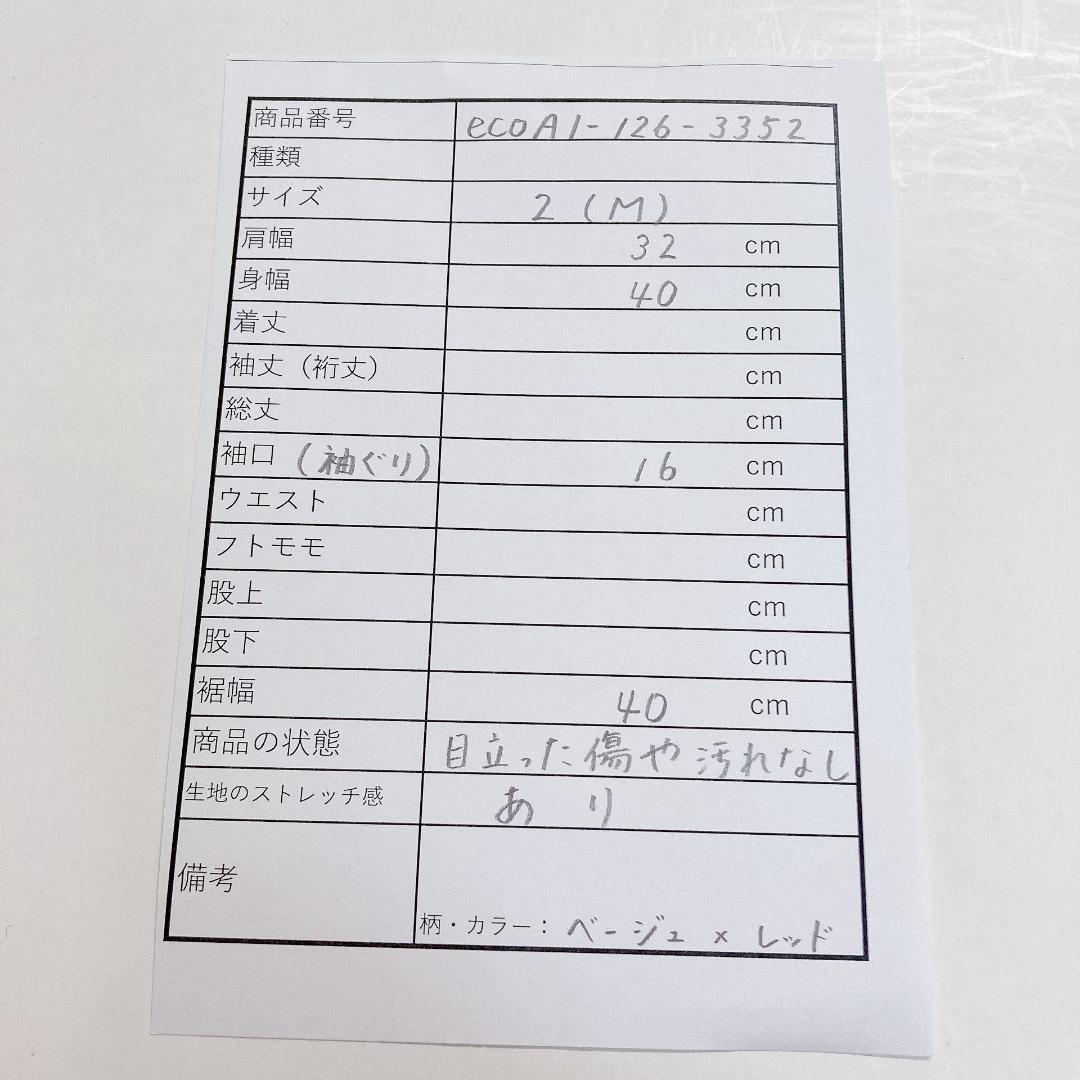 商品番号 ecoA1-126-3352
種類
サイズ 2(M)
肩幅 32 cm
身幅 40 cm
着丈 cm
袖丈（裄丈） cm
総丈 cm
袖口 (袖ぐり) 16 cm
ウエスト cm
フトモモ cm
股上 cm
股下 cm
裾幅 40 cm
商品の状態 目立った傷や汚れなし
生地のストレッチ感 あり
備考
柄・カラー： ベージュ × レッド